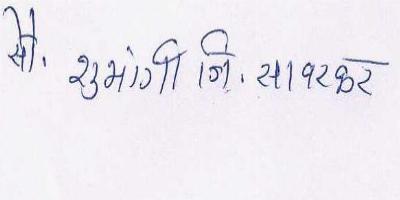 सौ. शुभांगी जि. सावरकर